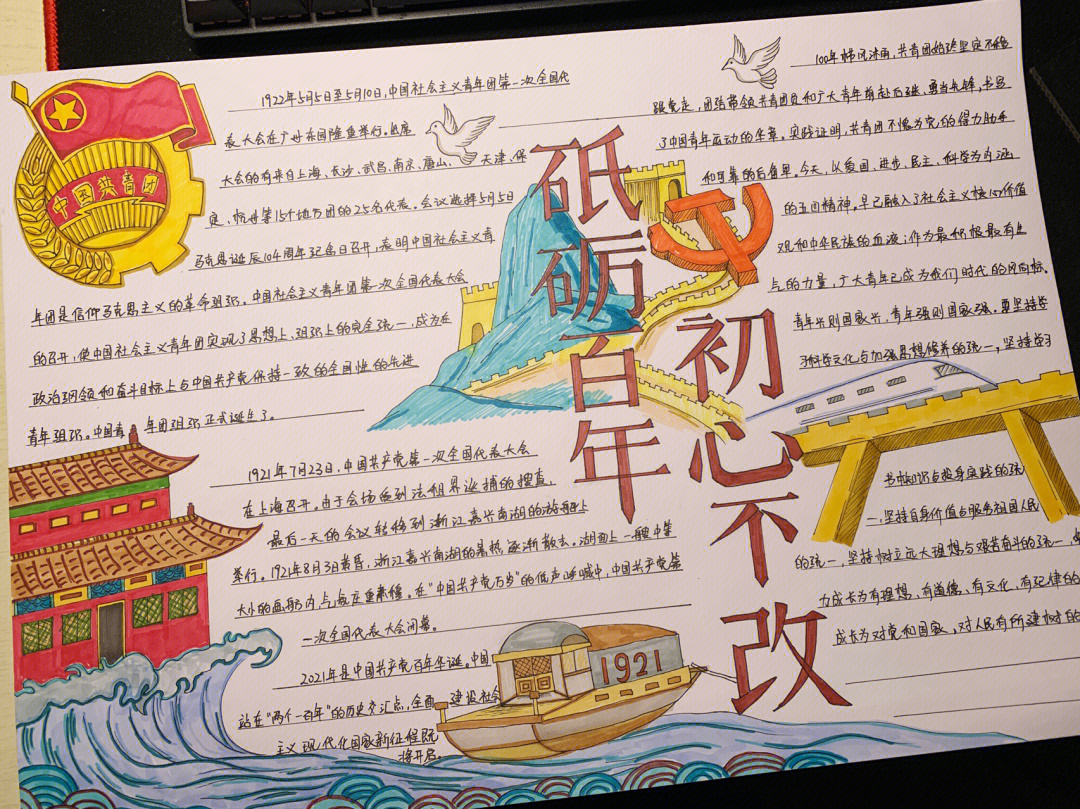 中国共青团
1922年5月5日至5月10日,中国社会主义青年团第一次全国代
表大会在广州东园隆重举行。出席
大会的有来自上海、长沙、武昌、南京、唐山、天津、保
定、杭州等15个地方团的25名代表。会议选择5月5日
马克思诞辰104周年纪念日召开,表明中国社会主义青
年团是信仰马克思主义的革命组织。中国社会主义青年团第一次全国代表大会
的召开,使中国社会主义青年团实现了思想上、组织上的完全统一,成为在
政治纲领和奋斗目标上与中国共产党保持一致的全国性的先进
青年组织。中国青年团组织正式诞生了。
1921年7月23日,中国共产党第一次全国代表大会
在上海召开。由于会场受到法租界巡捕的搜查,
最后一天的会议转移到浙江嘉兴南湖的游船上
举行。1921年8月3日黄昏,浙江嘉兴南湖的暑热逐渐散去。湖面上一艘中等
大小的画舫内,气氛庄重肃穆。在“中国共产党万岁”的低声呼喊中,中国共产党第
一次全国代表大会闭幕。
2021年是中国共产党百年华诞。中国
站在“两个一百年”的历史交汇点,全面建设社会
主义现代化国家新征程既
将开启。
砥砺百年
初心不改
1921
100年栉风沐雨,共青团始终坚定不移
跟党走,团结带领共青团员和广大青年前赴后继、勇当先锋,书写
了中国青年运动的华章。实践证明,共青团不愧为党的得力助手
和可靠的后备军。今天,以爱国、进步、民主、科学为内涵
的五四精神,早已融入了社会主义核心价值
观和中华民族的血液;作为最积极最有生
气的力量,广大青年已成为我们时代的风向标。
青年兴则国家兴,青年强则国家强。要坚持学
习科学文化与加强思想修养的统一,坚持学习
书本知识与投身实践的统
一,坚持自身价值与服务祖国人民
的统一,坚持树立远大理想与艰苦奋斗的统一,
力成长为有理想、有道德、有文化、有纪律的
成长为对党和国家、对人民有所建树的